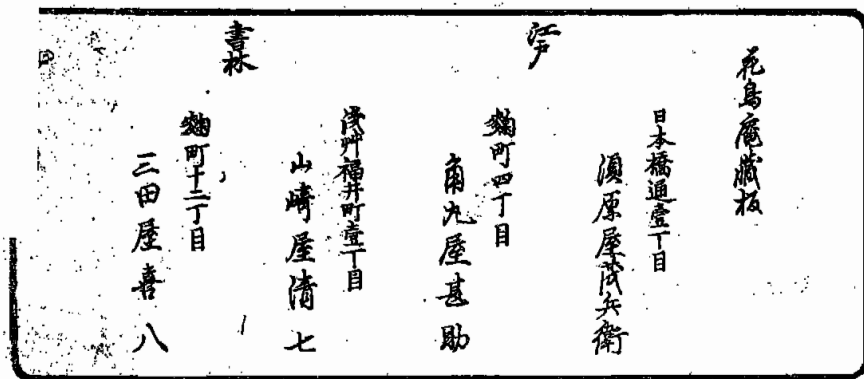 花鳥庵蔵板
日本橋通壹丁目
須原屋茂兵衛
江戸
麹町四丁目
角丸屋甚助
浅艸福井町壹丁目
山崎屋清七
書林
麹町十二丁目
三田屋喜八